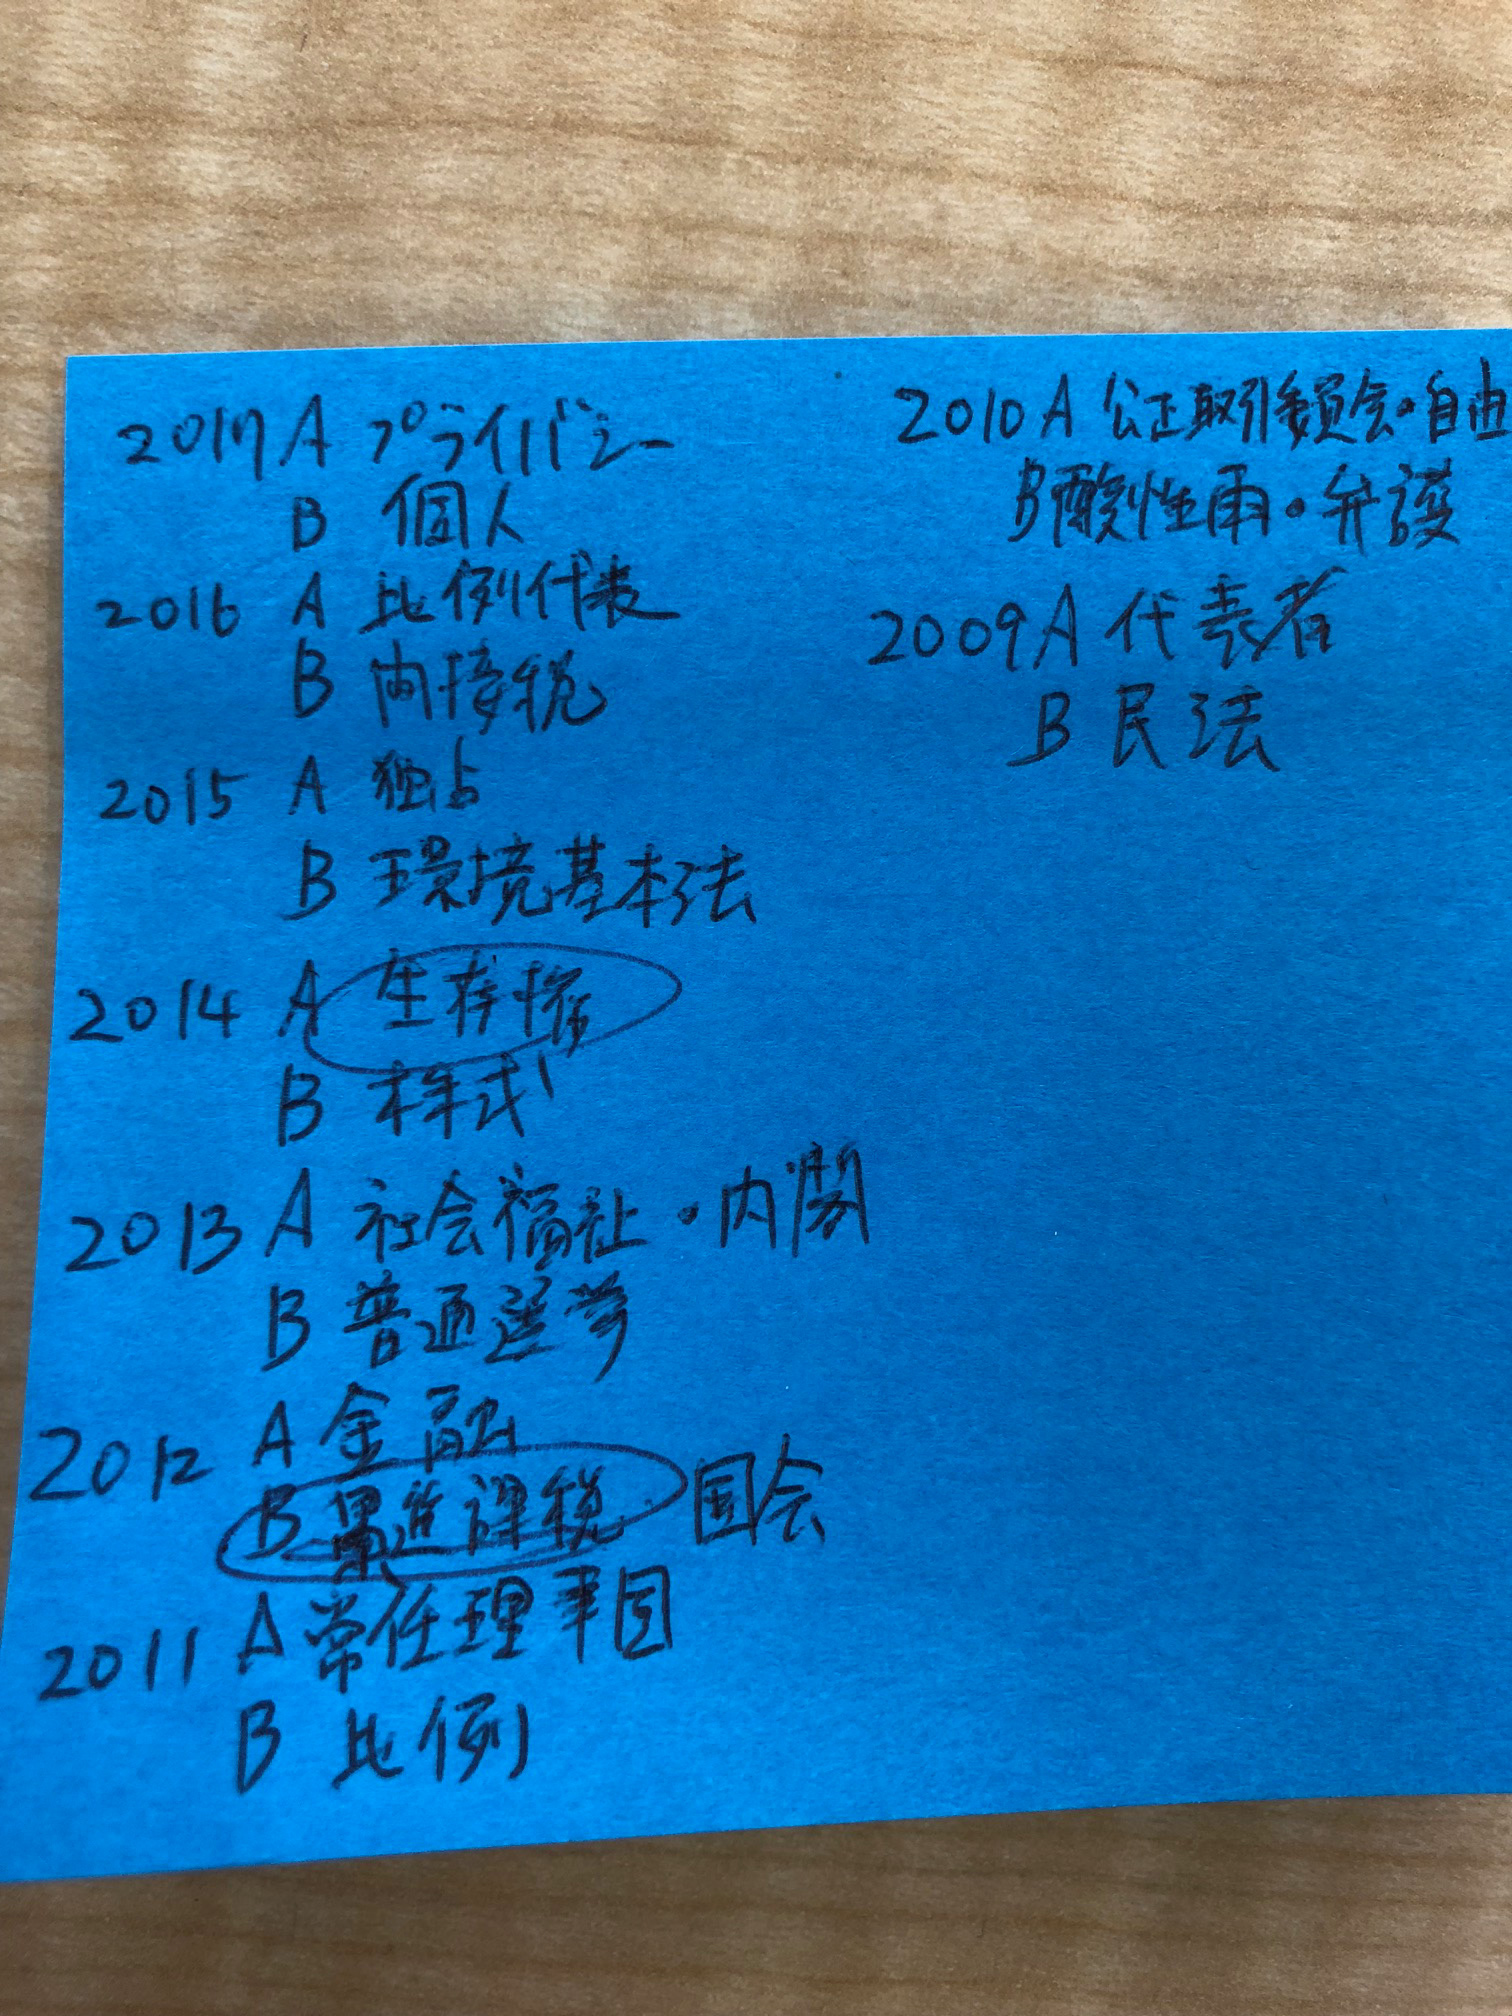 2017 A プライバシー
B 個人
2016 A 比例代表
B 内接税
2015 A 独占
B 環境基本法
2014 A 生存権
B 株式
2013 A 社会福祉・内閣
B 普通選挙
2012 A 金融
B 累進課税 国会
2011 A 常任理事国
B 比例
2010 A 公正取引委員会・自由
B 酸性雨・弁護
2009 A 代表者
B 民法